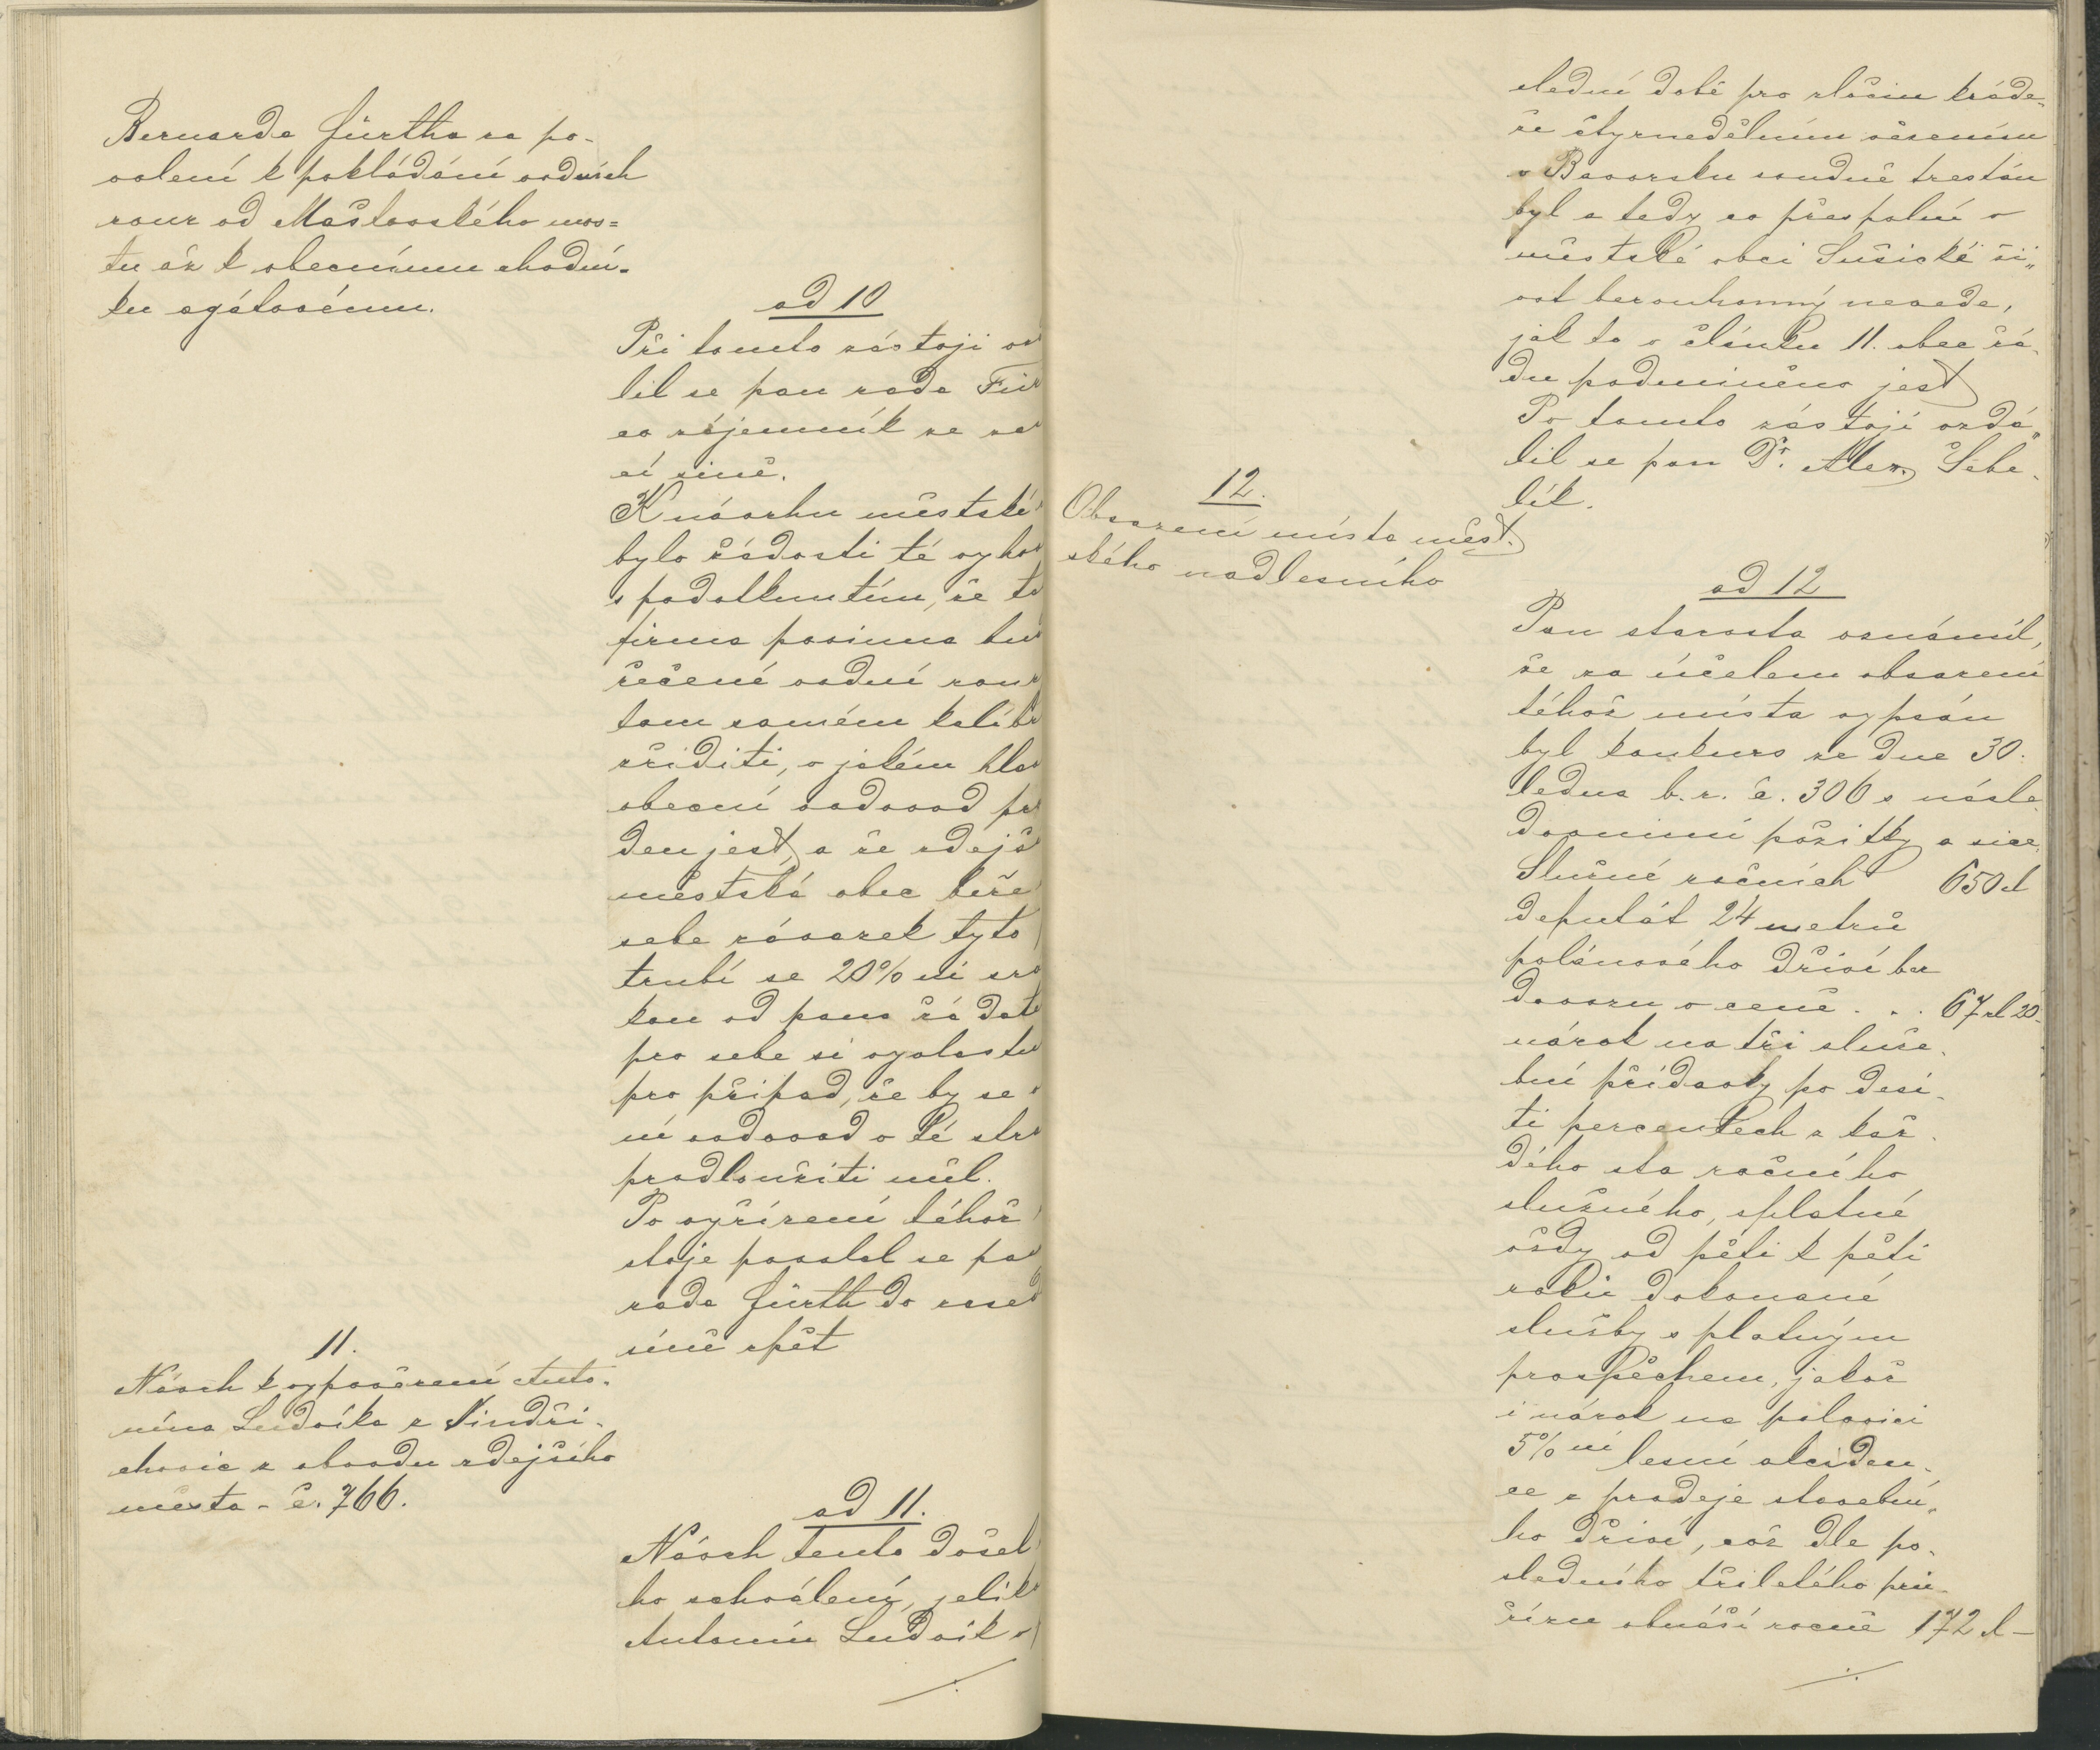 Bernarda Fürtha za po-
volení k pokládání vodních
rour od Mašťovského mos=
tu až k obecnímu chodní-
ku agátovému.
ad 10
Při tomto zástoji vz
lil se pan rada Für
co zájemník ze za
cí síně.
K návrhu městské
bylo žádosti té vyho
s podotknutím, že ta
firma povinna bu
řečené vodní rour
tom samém kalibr
zříditi, v jakém hla
obecní vodovod pr
den jest, a že zdejš
městská obec béře
sebe závazek tyto
trubí se 20%ní srá
kou od pana žadate
pro sebe si vyvlastn
pro případ, že by se
ní vodovod v té stra
prodloužiti měl.
Po vyřízení téhož
stoje povolal se pa
rada Fürth do zased
síně zpět
11.
Návrh k vypovězení Anto-
nína Ludvíka z Jindři-
chovic z obvodu zdejšího
města - č. 766.
ad 11.
Návrh tento došel
ho schválení, jelik
Antonín Ludvík v
slední době pro zločin kráde-
že čtyrnedělním vězením
v Bavorsku soudně trestán
byl a tedy co přespolní v
městské obci Sušické ži„
vot bezouhonný nevede,
jak to v článku 11. obec řá-
du podmíněno jest
Po tomto zástoji vzdá„
lil se pan Dr. Alex. Šebe-
lík.
12.
Obsazení místa měst-
ského nadlesního
ad 12
Pan starosta oznámil,
že za účelem obsazení
téhož místa vypsán
byl konkurs ze dne 30.
ledna b. r. č. 306 s násle-
dovními požitky a sice:
Služné ročních 650 zl
deputát 24 metrů
polenového dříví bez
dovozu v ceně . . . 67 zl 20
nárok na tři služe-
bní přídavky po desí-
ti percentech z kaž-
dého sta ročního
služného, splatné
vždy od pěti k pěti
roků dokonané
služby s platným
prospěchem, jakož
i nárok na polovici
5% ní lesní akciden-
ce z prodeje stavební„
ho dříví, což dle po-
sledního tříletého prů-
řízu obnáší ročně 172 zl —